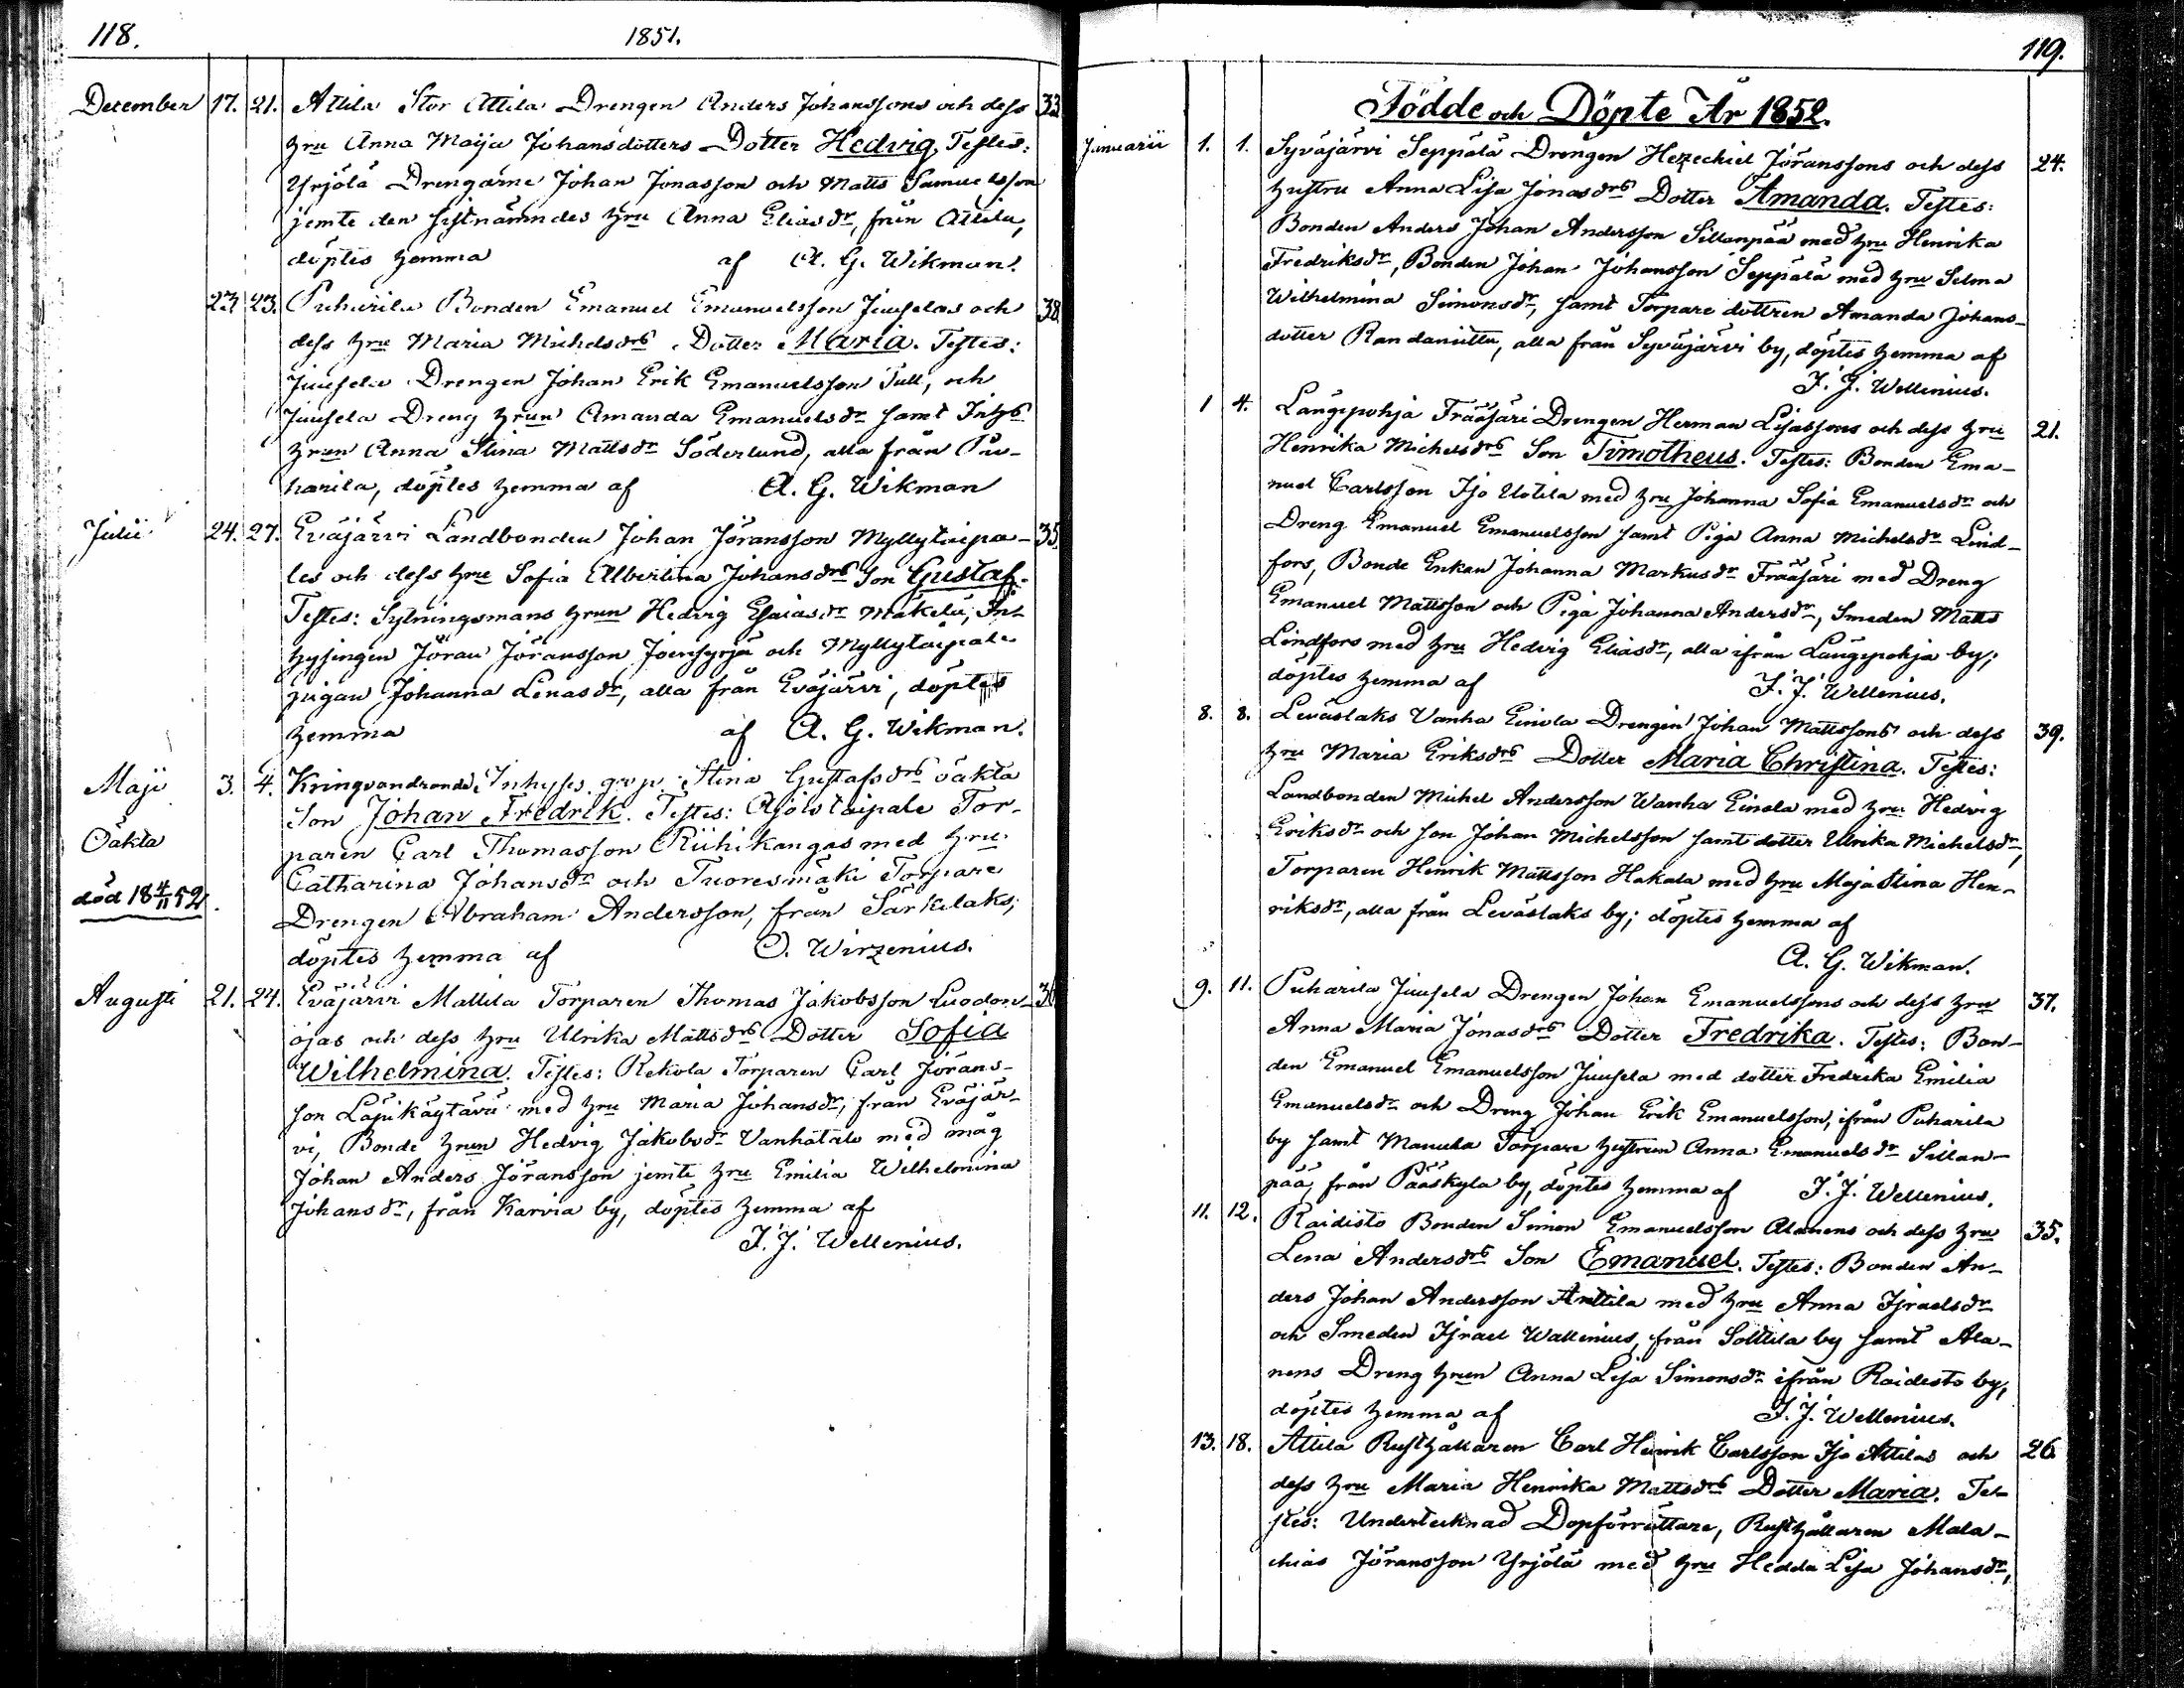 118. 1851.
December 17. 21. Attila Stor Attila Drengen Anders Johanssons och dess 33
hru Anna Maija Johansdotters Dotter Hedvig. Testes:
Yrjölä Drengarne Johan Jonasson och Matts Samuelsson
jemte den sistnämndes hru Anna Eliasdr, från Attila,
döptes hemma af A. G. Wikman.
23 23. Puharila Bonden Emanuel Emanuelsson Juuselas och 38
dess hru Maria Michelsdrs Dotter Maria. Testes:
Juusela Drengen Johan Erik Emanuelsson Tull, och
Juusela Dreng hrun Amanda Emanuelsdr samt Inhs
hrun Anna Stina Mattsdr Söderlund, alla från Pu-
harila, döptes hemma af A. G. Wikman
Julii 24. 27. Eväjärvi Landbonden Johan Jöransson Myllytaipa- 35
les och dess hru Sofia Albertina Johansdrs Son Gustaf.
Testes: Sytningsmans hrun Hedvig Esaiasdr Mäkelä, In-
hysingen Jöran Jöransson Joensyrjä och Myllytaipale
pigan Johanna Lenasdr, alla från Eväjärvi, döptes
hemma af A. G. Wikman.
Maji 3. 4. Kringvandrande Inhyses q:sp: Stina Gustafsdrs oäkta
Oäkta Son Johan Fredrik. Testes: Ajostaipale Tor-
paren Carl Thomasson Riihikangas med hru
Catharina Johansdr och Tuoresmäki Torpare
död 18 4/11 52. Drengen Abraham Andersson, från Särkilaks;
döptes hemma af O. Wirzenius.
Augusti 21. 24. Eväjärvi Mattila Torparen Thomas Jakobsson Luodon- 36
ojas och dess hru Ulrika Mattsdrs Dotter Sofia
Wilhelmina. Testes: Rekola Torparen Carl Jörans-
son Läpikäytävä med hru Maria Johansdr, från Eväjär-
vi, Bonde hrun Hedvig Jakobsdr Vanhatalo med måg
Johan Anders Jöransson jemte hru Emilia Wilhelmina
Johansdr, från Karvia by, döptes hemma af
I. J. Wellenius.
119.
Födde och Döpte År 1852.
Januarii 1. 1. Syväjärvi Seppälä Drengen Hezechiel Jöranssons och dess 24.
hustru Anna Lisa Jonasdrs Dotter Amanda. Testes:
Bonden Anders Johan Andersson Sillanpää med hru Henrika
Fredriksdr, Bonden Johan Johansson Seppälä med hru Selma
Wilhelmina Simonsdr, samt Torpare dottren Amanda Johans-
dotter Randaniittu, alla från Syväjärvi by, döptes hemma af
I. J. Wellenius.
1 4. Långepohja Frääsäri Drengen Herman Lisassons och dess hru 21.
Henrika Michelsdrs Son Timotheus. Testes: Bonden Ema-
nuel Carlsson Iso Uotila med hru Johanna Sofia Emanuelsdr och
Dreng Emanuel Emanuelsson samt Piga Anna Michelsdr Lind-
fors, Bonde Enkan Johanna Markusdr Frääsäri med Dreng
Emanuel Mattsson och Piga Johanna Andersdr, Smeden Matts
Lindfors med hru Hedvig Eliasdr, alla ifrån Långepohja by;
döptes hemma af I. J. Wellenius.
8. 8. Leväslaks Vanha Einola Drengen Johan Mattssons och dess 39.
hru Maria Eriksdrs Dotter Maria Christina. Testes:
Landbonden Michel Andersson Wanha Einola med hru Hedvig
Eriksdr och son Johan Michelsson samt dotter Ulrika Michelsdr,
Torparen Henrik Mattsson Hakala med hru Maja Stina Hen-
riksdr, alla från Leväslaks by; döptes hemma af
A. G. Wikman.
9. 11. Puharila Juusela Drengen Johan Emanuelssons och dess hru 37.
Anna Maria Jonasdrs Dotter Fredrika. Testes: Bon-
den Emanuel Emanuelsson Juusela med dotter Fredrika Emilia
Emanuelsdr och Dreng Johan Erik Emanuelsson, ifrån Puharila
by samt Mannila Torpare hustrun Anna Emanuelsdr Sillan-
pää, från Pääskylä by, döptes hemma af I. J. Wellenius.
11. 12. Raidisto Bonden Simon Emanuelsson Alanens och dess hru 35.
Lena Andersdrs Son Emanuel. Testes: Bonden An-
ders Johan Andersson Anttila med hru Anna Israelsdr
och Smeden Israel Wallenius, från Solttila by samt Ala-
nens Dreng hrun Anna Lisa Simonsdr ifrån Raidisto by,
döptes hemma af I. J. Wellenius.
13. 18. Attila Rusthållaren Carl Henrik Carlsson Iso Attilas och 26
dess hru Maria Henrika Mattsdrs Dotter Maria. Tes-
tes: Undertecknad Dopförrättare, Rusthållaren Mala-
chias Jöransson Yrjölä med hru Hedda Lisa Johansdr,